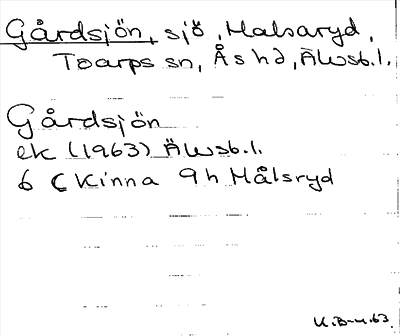 Gårdsjön, sjö, Malsaryd,
Toarps sn, Ås hd, Älvsb.l.
Gårdsjön
ek (1963) Älvsb.l.
6 C Kinna 9h Målsryd
K.B-n.63